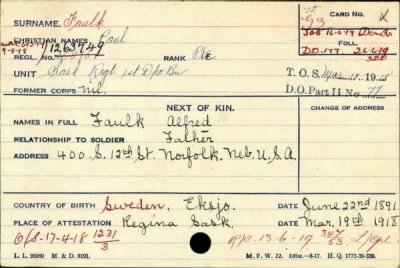 SURNAME. Faulk
CHRISTIAN NAMES Paul
REGL. No. 1263749 RANK Pte
UNIT Sask Regt 1st Dpo Bn
FORMER CORPS nil.
CARD No.
SOS 16-6-19 Demob
FOLL.
D.O. 177
T.O.S. Mar 18
D.O. Part II No. 77
NEXT OF KIN.
CHANGE OF ADDRESS
NAMES IN FULL Faulk Alfred
RELATIONSHIP TO SOLDIER Father
ADDRESS 400 S. 12th St. Norfolk. Neb. U.S.A.
COUNTRY OF BIRTH Sweden, Eksjo. DATE June 22nd 1891
PLACE OF ATTESTATION Regina Sask. DATE Mar. 19th 1918
O/S-17-4-18 1231/3
R/C-13-6-19 347/53
M. & D. 8191. M. F. W. 22